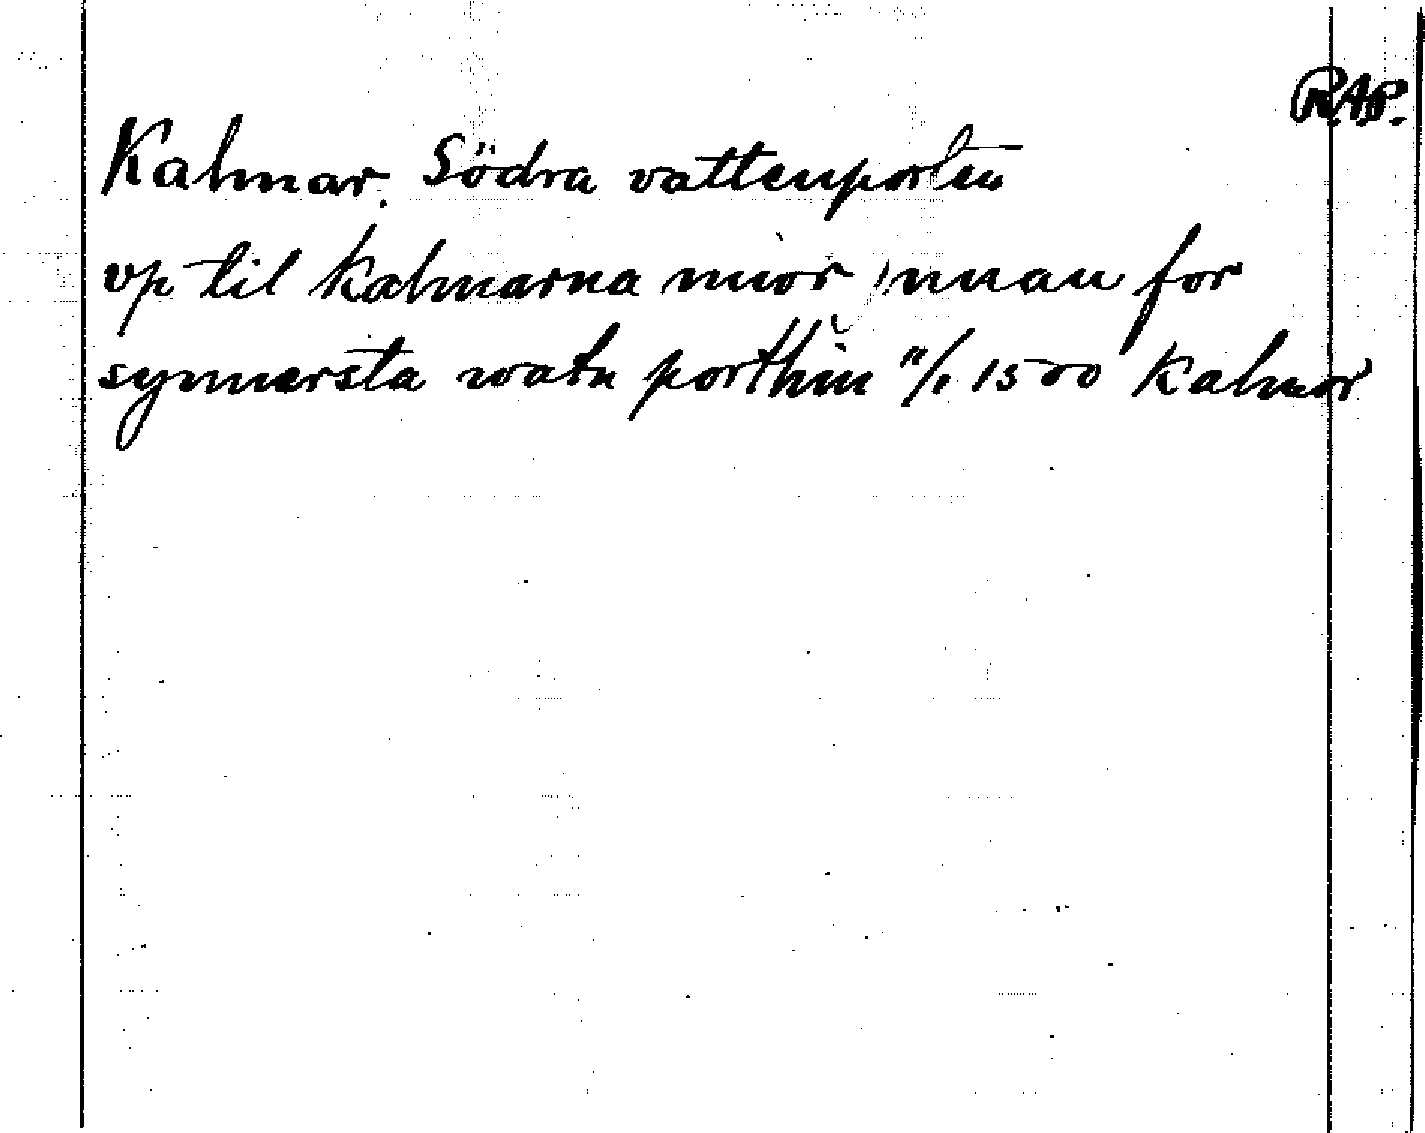 RAP.
Kalmar. Södra vattenporten
vp til kalmarna mwr jnnan for
synnersta watn porthin 11/1 1500 Kalmar